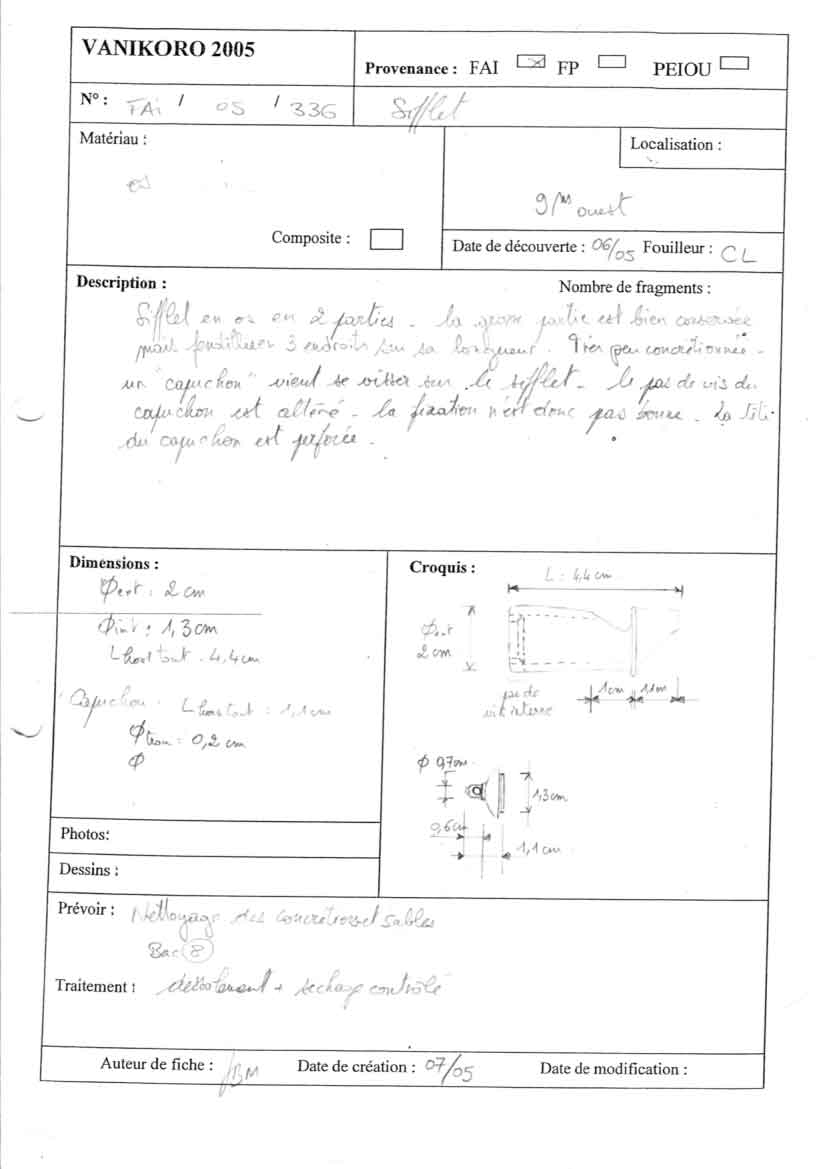 VANIKORO 2005
Provenance : FAI FP PEIOU
N° : FAi / 05 / 336 Sifflet
Matériau :
os
Localisation :
9 M ouest
Composite :
Date de découverte : 06/05 Fouilleur : CL
Description :
Nombre de fragments :
Sifflet en os en 2 parties - la grosse partie est bien conservée
mais 3 endroits sur sa longueur. Très peu concrétionnée -
un "capuchon" vient se visser sur le sifflet - le pas de vis du
capuchon est altéré - la fixation n'est donc pas bonne - La tête
du capuchon est perforée.
Dimensions :
Φext : 2 cm
Φint : 1,3 cm
L hors tout : 4,4 cm
Capuchon : L hors tout : 1,1 cm
Φ trou = 0,2 cm
Φ
Croquis :
L : 4,4 cm
Φext
2 cm
pas de
vis interne
1cm
Φ 0,7cm
1,3cm
0,6cm
1,1 cm
Photos:
Dessins :
Prévoir : Nettoyage des concrétions et sables
Bac 8
Traitement : dessalement + séchage contrôlé
Auteur de fiche : BM Date de création : 07/05 Date de modification :